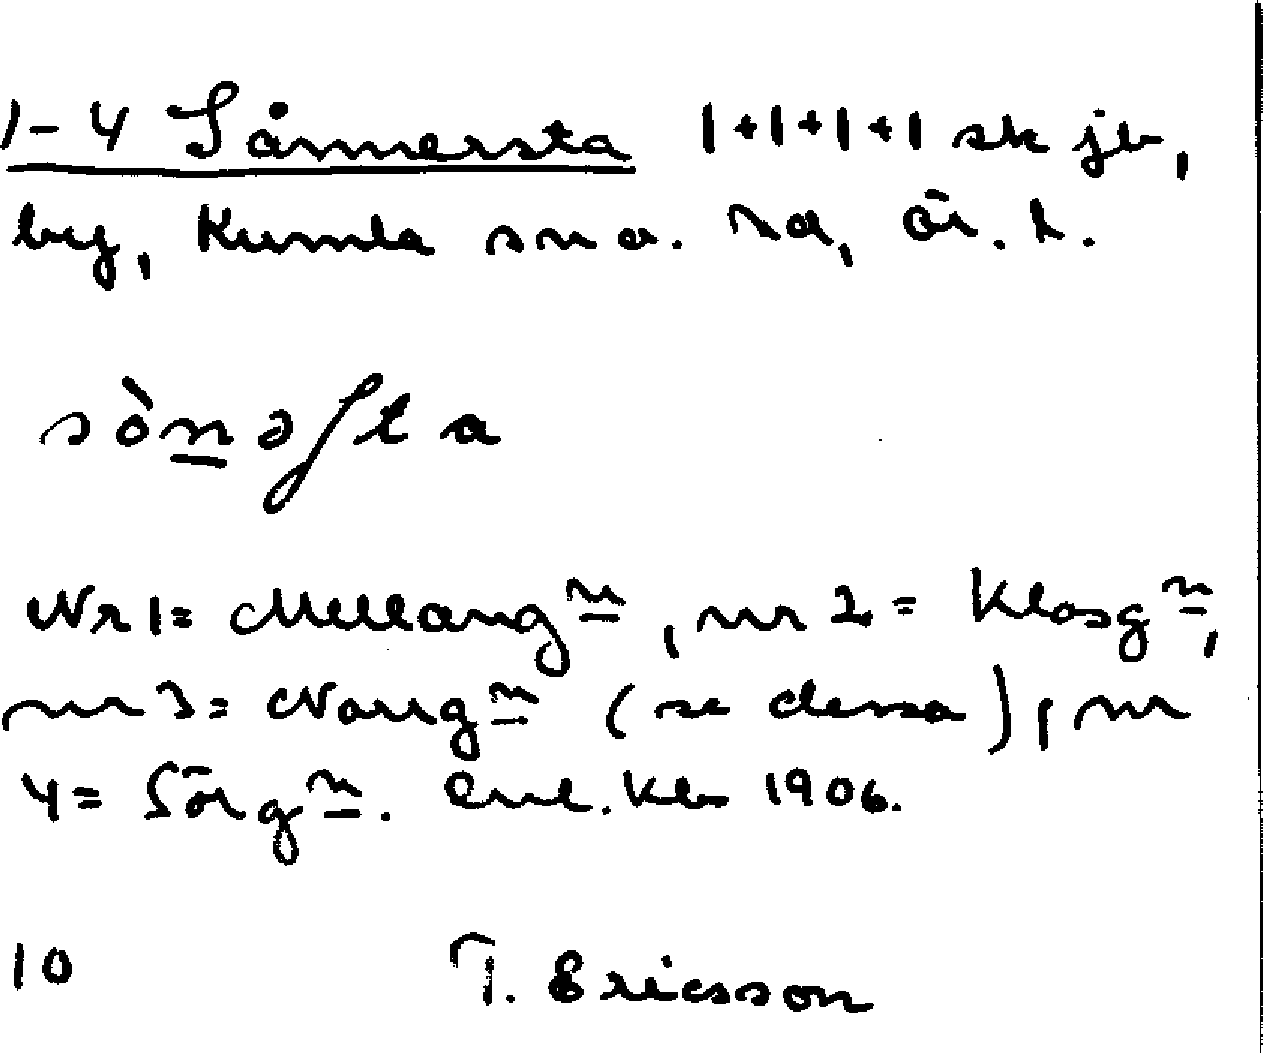 1-4 Sånnersta 1+1+1+1 sk jb,
by, Kumla sn o. hd, Ör. l.
sònəʃta
Nr 1 = Mellangn, nr 2 = Klosgn,
nr 3 = Norrgn (se dessa), nr
4 = Sörgn. Enl. kb 1906.
10 T. Ericsson